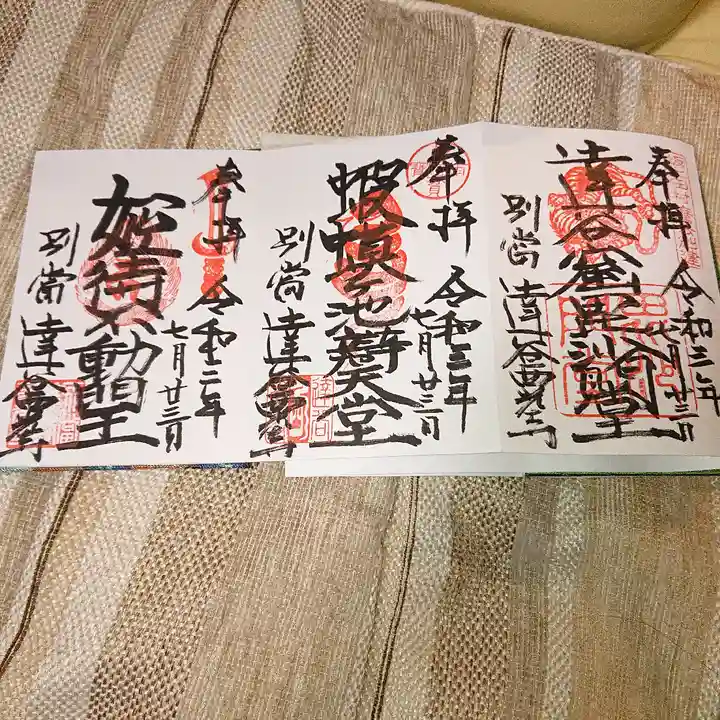 奉拝
令和三年
七月廿三日
達谷窟毘沙門堂
別當達谷西光寺
奉拝
令和三年
七月廿三日
蝦蟆ヶ池辯天堂
別當達谷西光寺
奉拝
令和三年
七月廿三日
姫待不動王
別當達谷西光寺